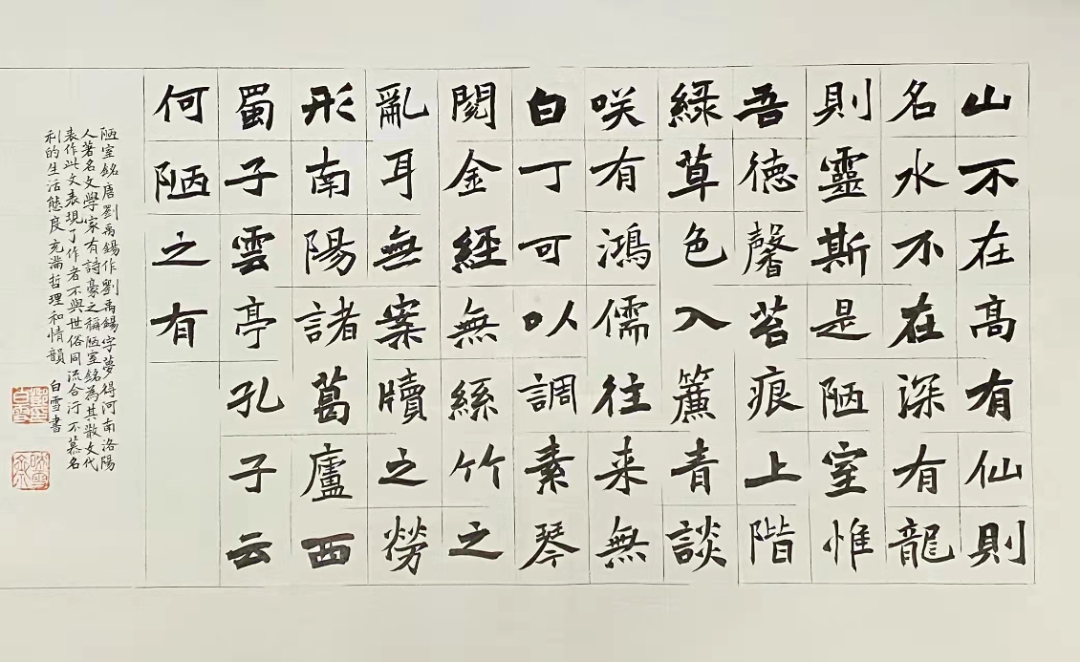 山不在高有仙則
名水不在深有龍
則靈斯是陋室惟
吾德馨苔痕上階
綠草色入簾青談
咲有鴻儒往来無
白丁可以調素琴
閱金經無絲竹之
亂耳無案牘之勞
形南陽諸葛廬西
蜀子雲亭孔子云
何陋之有
陋室銘唐劉禹錫作劉禹錫字夢得河南洛陽
人著名文學家有詩豪之稱陋室銘為其散文代
表作此文表現了作者不與世俗同流合汙不慕名
利的生活態度充滿哲理和情韻 白雪書